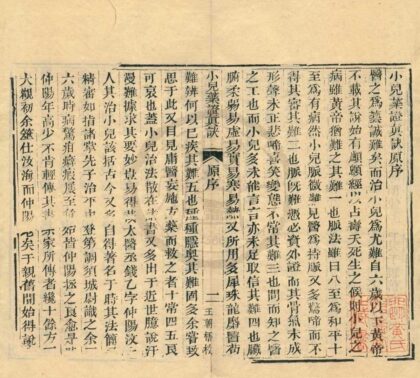 小兒藥證眞訣原序
醫之爲藝誠難矣而治小兒爲尤難自六歲以下黃帝
不載其說始有顱顖經以占壽夭死生之候則小兒之
病雖黃帝猶難之其難一也脈法雖曰八至爲和平十
至爲有病然小兒脈微難見醫爲持脈又多驚啼而不
得其審其難二也脈既難憑必資外證而其骨氣未成
形聲未正悲啼喜笑變態不常其難三也問而知之醫
之工也而小兒多未能言言亦未足取信其難四也臟
腑柔弱易虛易實易寒易熱又所用多犀珠龍麝醫苟
小兒藥證眞訣 原序 一 王朝梧校
難辨何以已疾其難五也種種隱奧其難固多余嘗致
思于此又目見庸醫妄施方藥而殺之者十常四五良
可哀也蓋小兒治法散在諸書又多出于近世臆說汗
漫難據求其要妙豈易得哉太醫丞錢乙字仲陽汶上
人其治小兒該括古今又多自得著名于時其法簡易
精審如指諸掌先子治平中登第調須城尉識之余五
六歲時病驚疳癖瘕屢至危殆皆仲陽拯之良愈是時
仲陽年高少不肯輕傳其書余家所傳者纔十餘方耳
大觀初余筮仕汝海而仲陽老矣于親舊間始得說